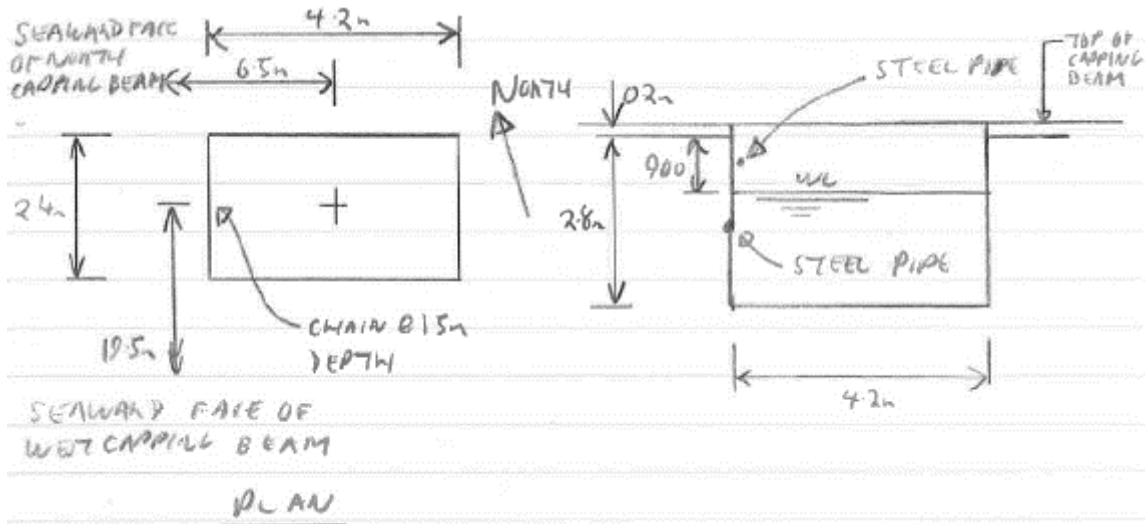 SEAWARD FACE
OF NORTH
CAPPING BEAM
4.2m
6.5m
NORTH
2.4m
CHAIN @ 1.5m
DEPTH
19.5m
SEAWARD FACE OF
WEST CAPPING BEAM
PLAN
0.2m
STEEL PIPE
TOP OF
CAPPING
BEAM
900
WL
2.8m
STEEL PIPE
4.2m